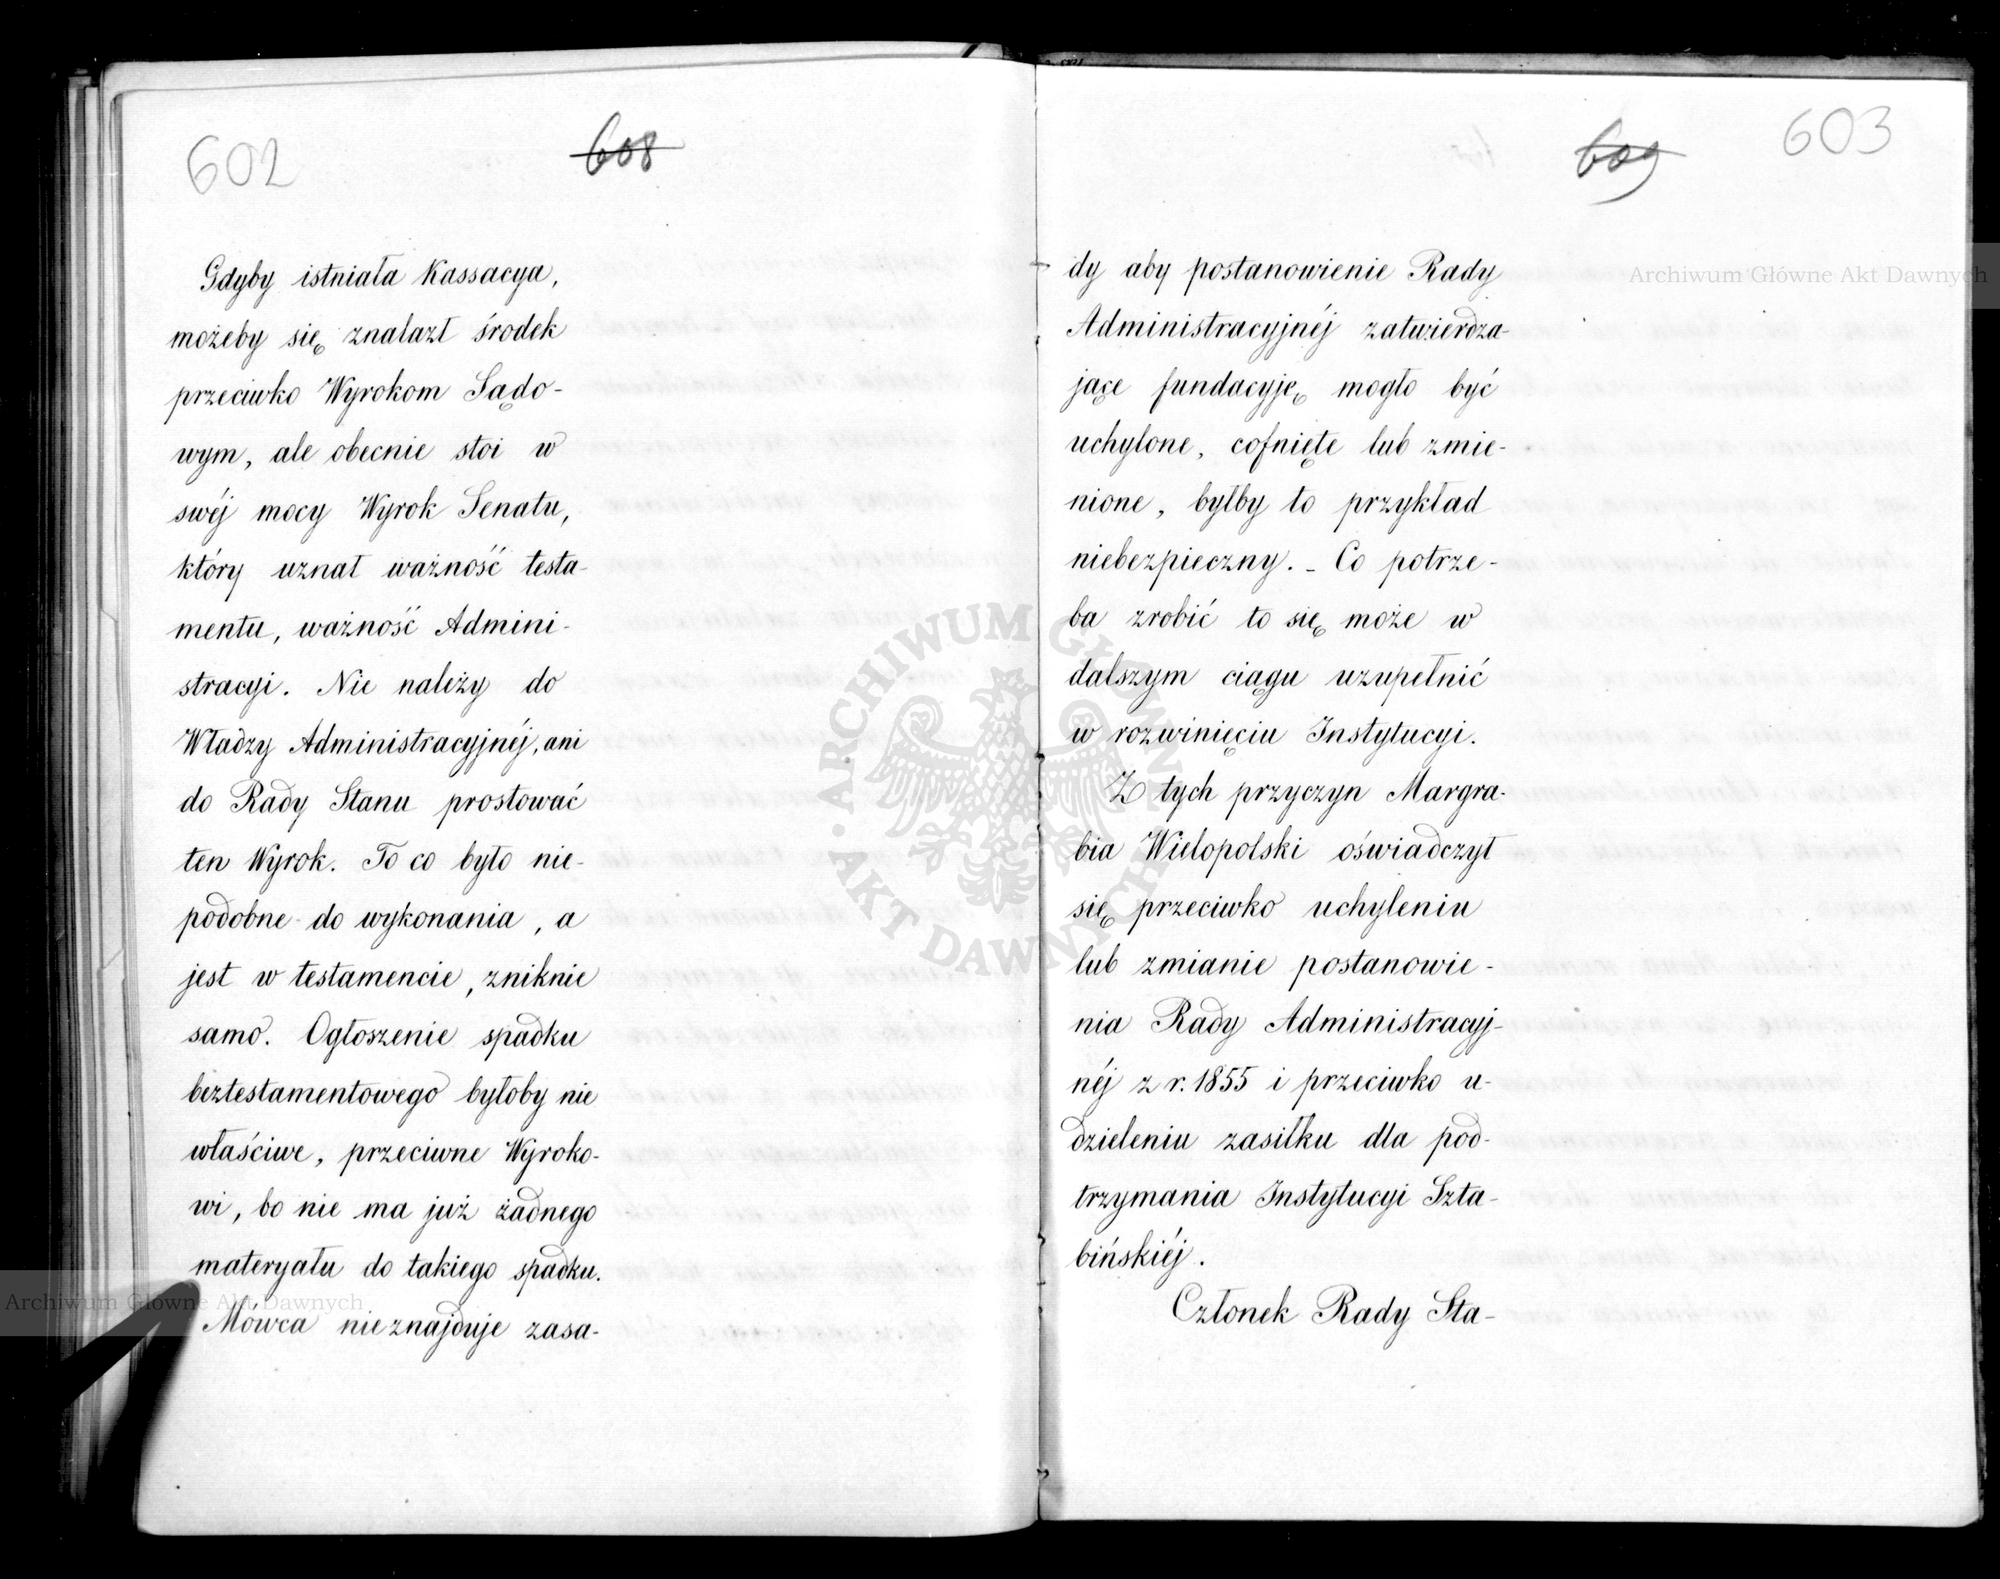 602
608
Gdyby istniała Kassacya,
możeby się znalazł środek
przeciwko Wyrokom Sądo-
wym, ale obecnie stoi w
swéj mocy Wyrok Senatu,
który uznał ważność testa-
mentu, ważność Admini-
stracyi. Nie należy do
Władzy Administracyjnéj, ani
do Rady Stanu prostować
ten Wyrok. To co było nie-
podobne do wykonania, a
jest w testamencie, zniknie
samo. Ogłoszenie spadku
beztestamentowego byłoby nie
właściwe, przeciwne Wyroko-
wi, bo nie ma już żadnego
materyału do takiego spadku.
Mówca nieznajduje zasa-
609
603
dy aby postanowienie Rady
Administracyjnéj zatwierdza-
jące fundacyję mogło być
uchylone, cofnięte lub zmie-
nione, byłby to przykład
niebezpieczny. - Co potrze-
ba zrobić to się może w
dalszym ciągu uzupełnić
w rozwinięciu Instytucyi.
Z tych przyczyn Margra-
bia Wielopolski oświadczył
się przeciwko uchyleniu
lub zmianie postanowie-
nia Rady Administracyj-
néj z r. 1855 i przeciwko u-
dzieleniu zasiłku dla pod-
trzymania Instytucyi Szta-
bińskiéj.
Członek Rady Sta-
Archiwum Główne Akt Dawnych
Archiwum Główne Akt Dawnych
ARCHIWUM GŁÓWNE AKT DAWNYCH